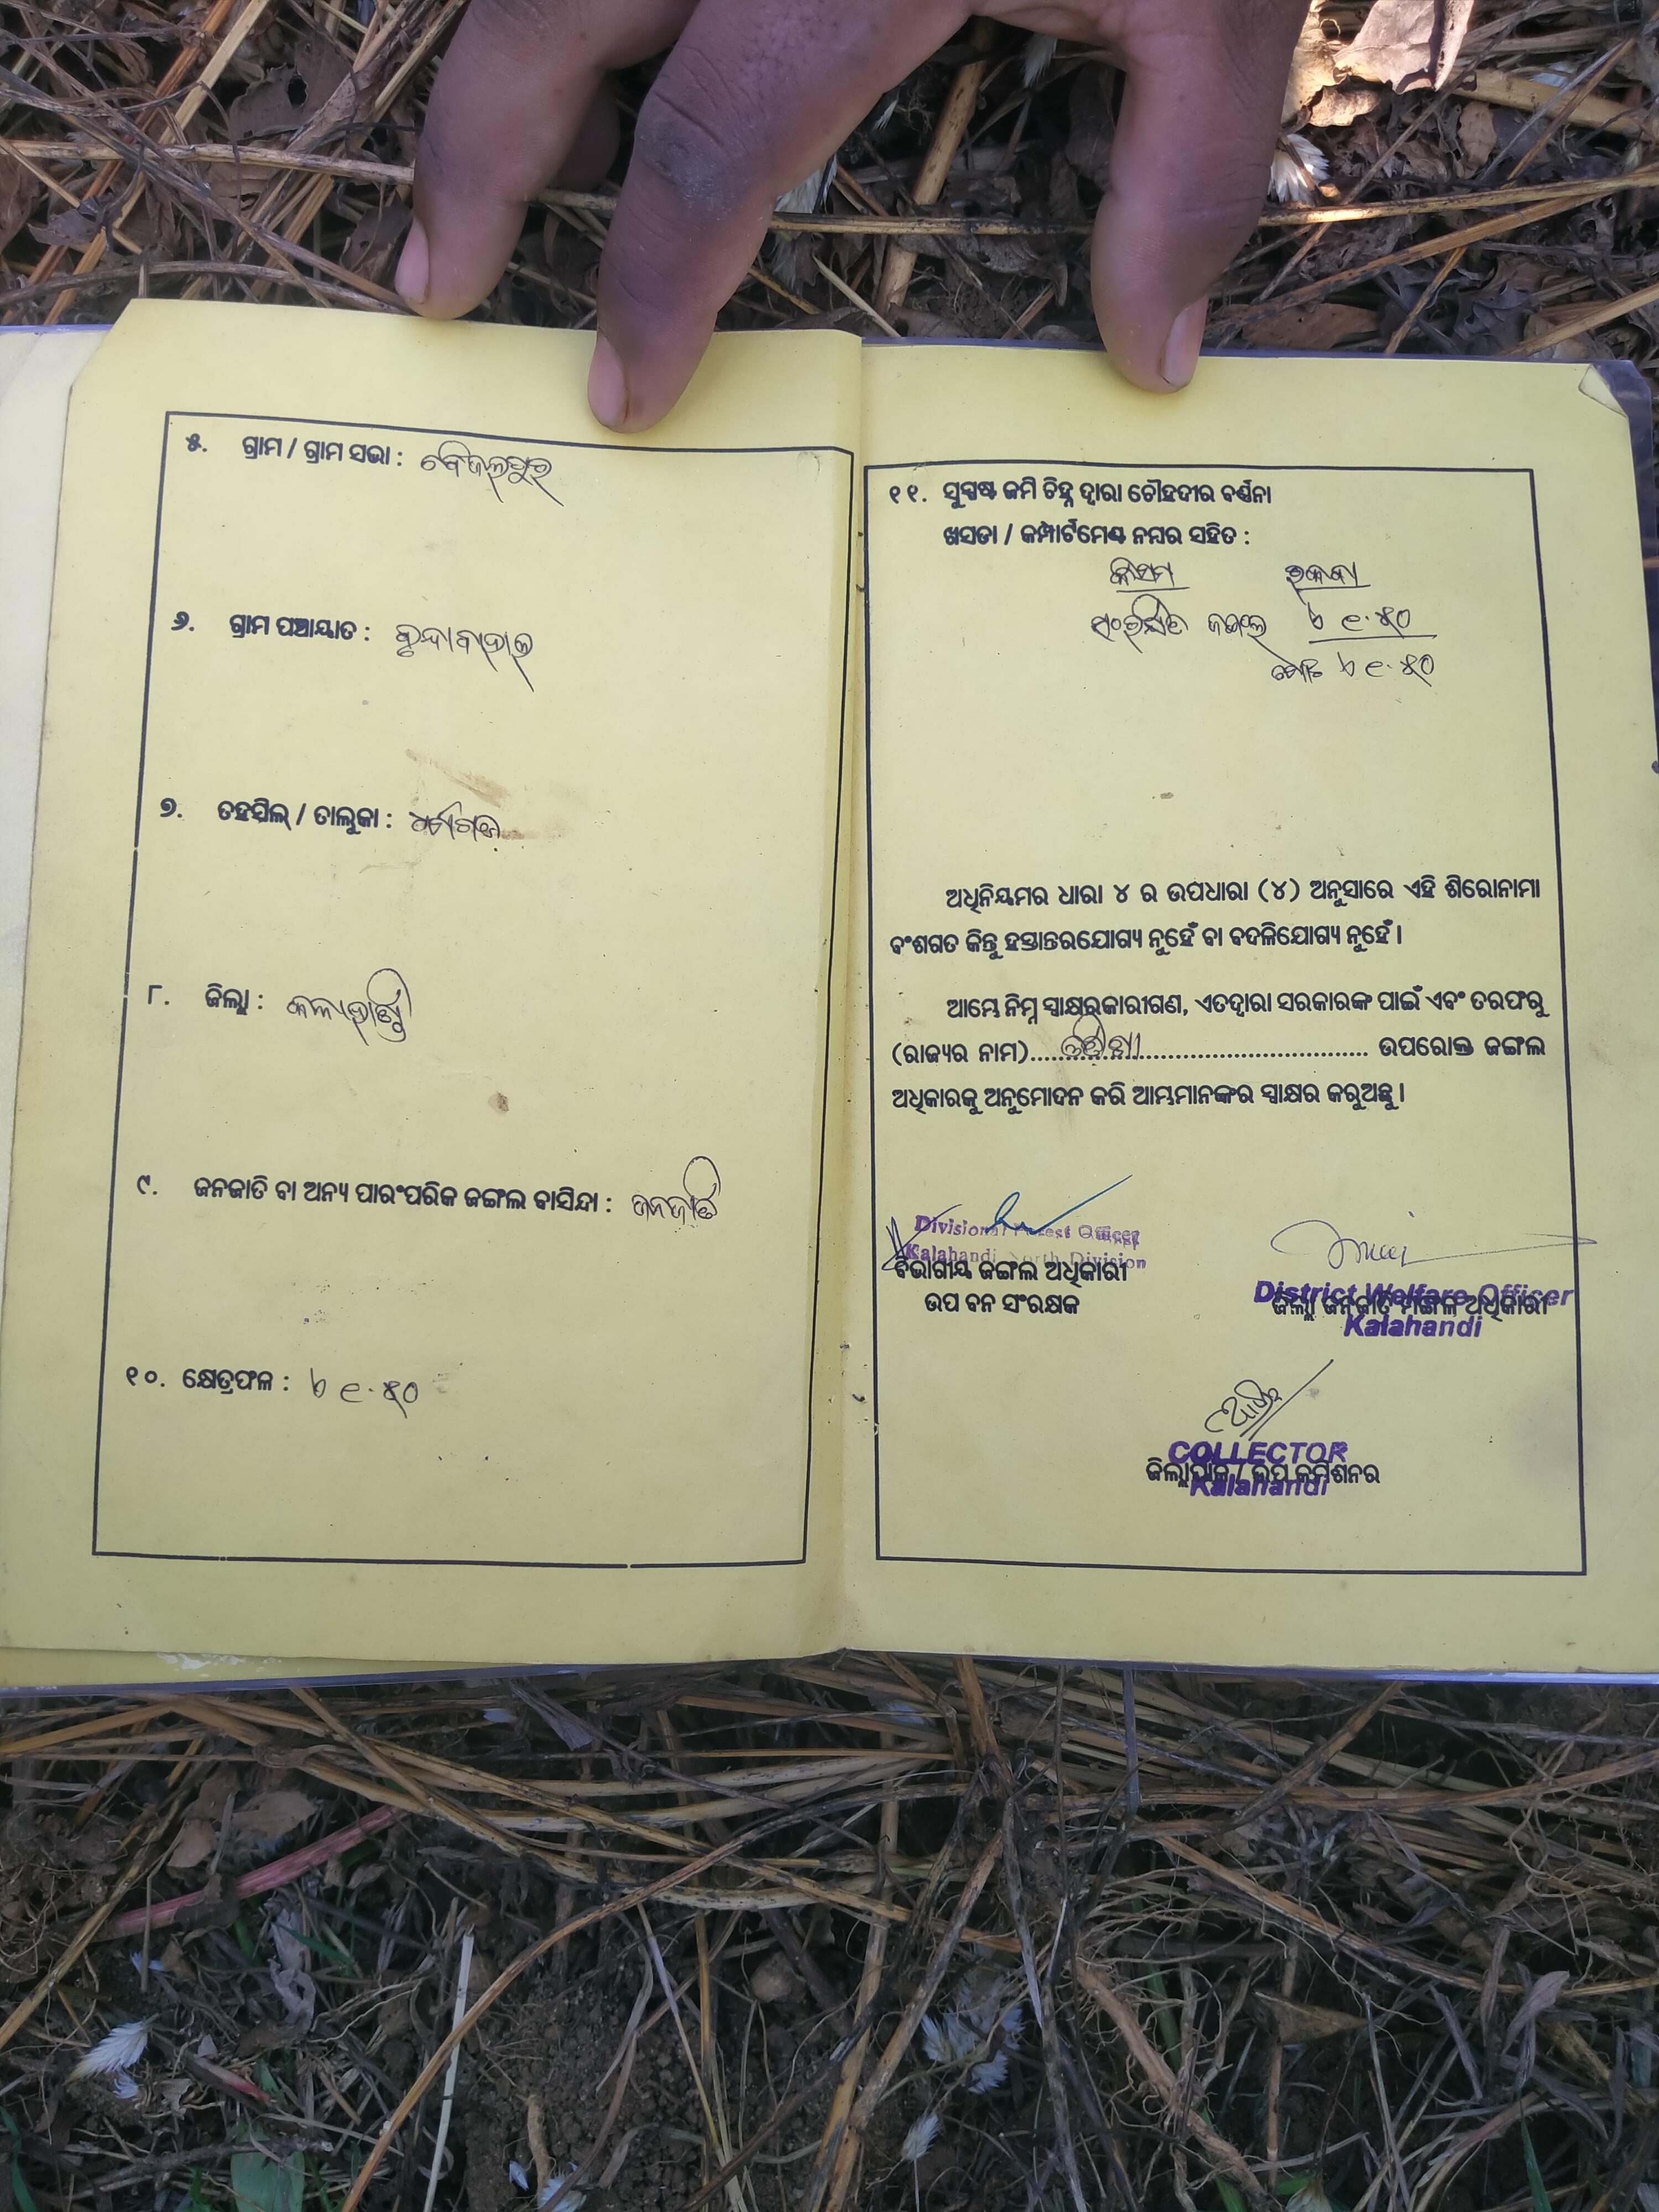 ୫. ଗ୍ରାମ / ଗ୍ରାମ ସଭା : ବିଜଲପୁର
୬. ଗ୍ରାମ ପଞ୍ଚାୟାତ : ବୃନ୍ଦାବାହାଲ
୭. ତହସିଲ୍ / ତାଲୁକା : ଧର୍ମଗଡ଼
୮. ଜିଲ୍ଲା : କଳାହାଣ୍ଡି
୯. ଜନଜାତି ବା ଅନ୍ୟ ପାରଂପରିକ ଜଙ୍ଗଲ ବାସିନ୍ଦା : ଜନଜାତି
୧୦. କ୍ଷେତ୍ରଫଳ : ୯.୫୦
୧୧. ସୁସ୍ପଷ୍ଟ ଜମି ଚିହ୍ନ ଦ୍ୱାରା ଚୌହଦୀର ବର୍ଣ୍ଣନା
ଖସଡା / କମ୍ପାର୍ଟମେଣ୍ଟ ନମ୍ବର ସହିତ :
କିସମ ରକବା
ସଂରକ୍ଷିତ ଜଙ୍ଗଲ ୯.୫୦
ମୋଟ ୯.୫୦
ଅଧିନିୟମର ଧାରା ୪ ର ଉପଧାରା (୪) ଅନୁସାରେ ଏହି ଶିରୋନାମା
ବଂଶଗତ କିନ୍ତୁ ହସ୍ତାନ୍ତରଯୋଗ୍ୟ ନୁହେଁ ବା ବଦଳିଯୋଗ୍ୟ ନୁହେଁ ।
ଆମ୍ଭେ ନିମ୍ନ ସ୍ୱାକ୍ଷରକାରୀଗଣ, ଏତଦ୍ୱାରା ସରକାରଙ୍କ ପାଇଁ ଏବଂ ତରଫରୁ
(ରାଜ୍ୟର ନାମ)..... ଓଡ଼ିଶା ..... ଉପରୋକ୍ତ ଜଙ୍ଗଲ
ଅଧିକାରକୁ ଅନୁମୋଦନ କରି ଆମ୍ଭମାନଙ୍କର ସ୍ୱାକ୍ଷର କରୁଅଛୁ ।
Divisional Forest Officer
Kalahandi North Division
ବିଭାଗୀୟ ଜଙ୍ଗଲ ଅଧିକାରୀ
ଉପ ବନ ସଂରକ୍ଷକ
District Welfare Officer
ଜିଲ୍ଲା ଜନଜାତି ମଙ୍ଗଳ ଅଧିକାରୀ
Kalahandi
COLLECTOR
ଜିଲ୍ଲାପାଳ / ଉପ କମିଶନର
Kalahandi